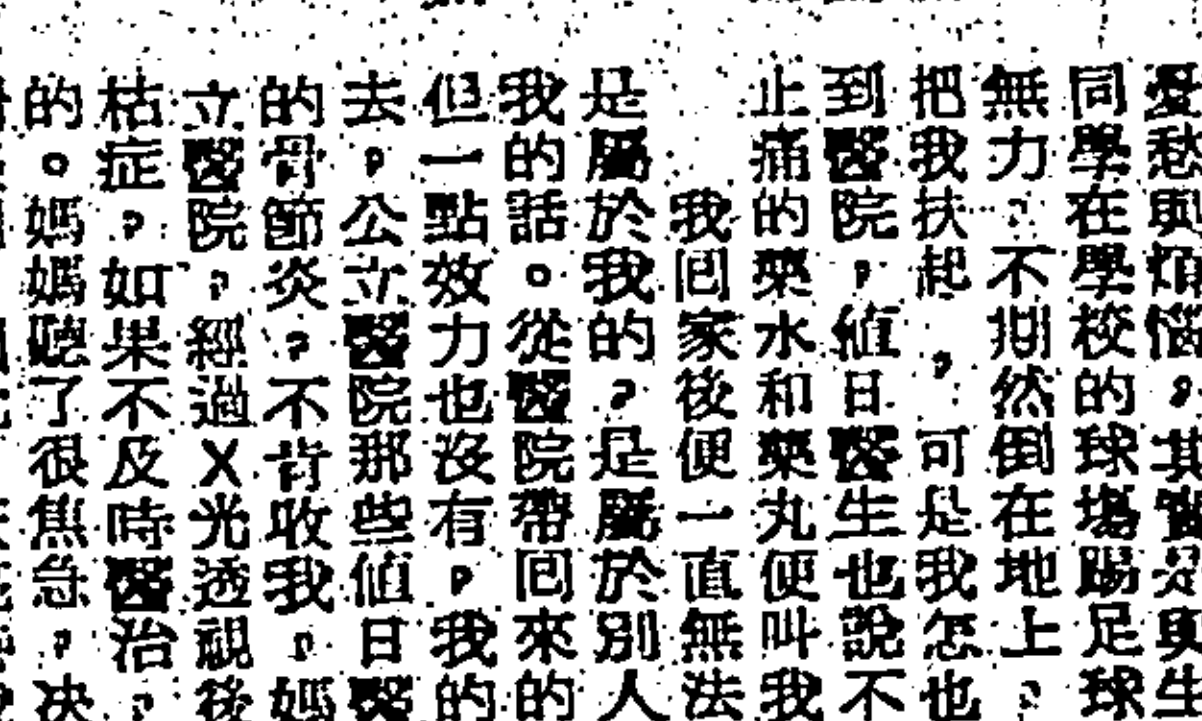 愛愁與煩惱，其實是與生
同學在學校的球場踢足球
無力，不期然倒在地上，
把我扶起，可是我怎也
到醫院，值日醫生也說不
止痛的藥水和藥丸便叫我
我回家後便一直無法
是屬於我的，是屬於別人
我的話。從醫院帶回來的
但一點效力也沒有，我的
去，公立醫院那些值日醫
的骨節炎，不肯收我，媽
立醫院，經過X光透視後
枯症，如果不及時醫治，
的。媽媽聽了很焦急，決